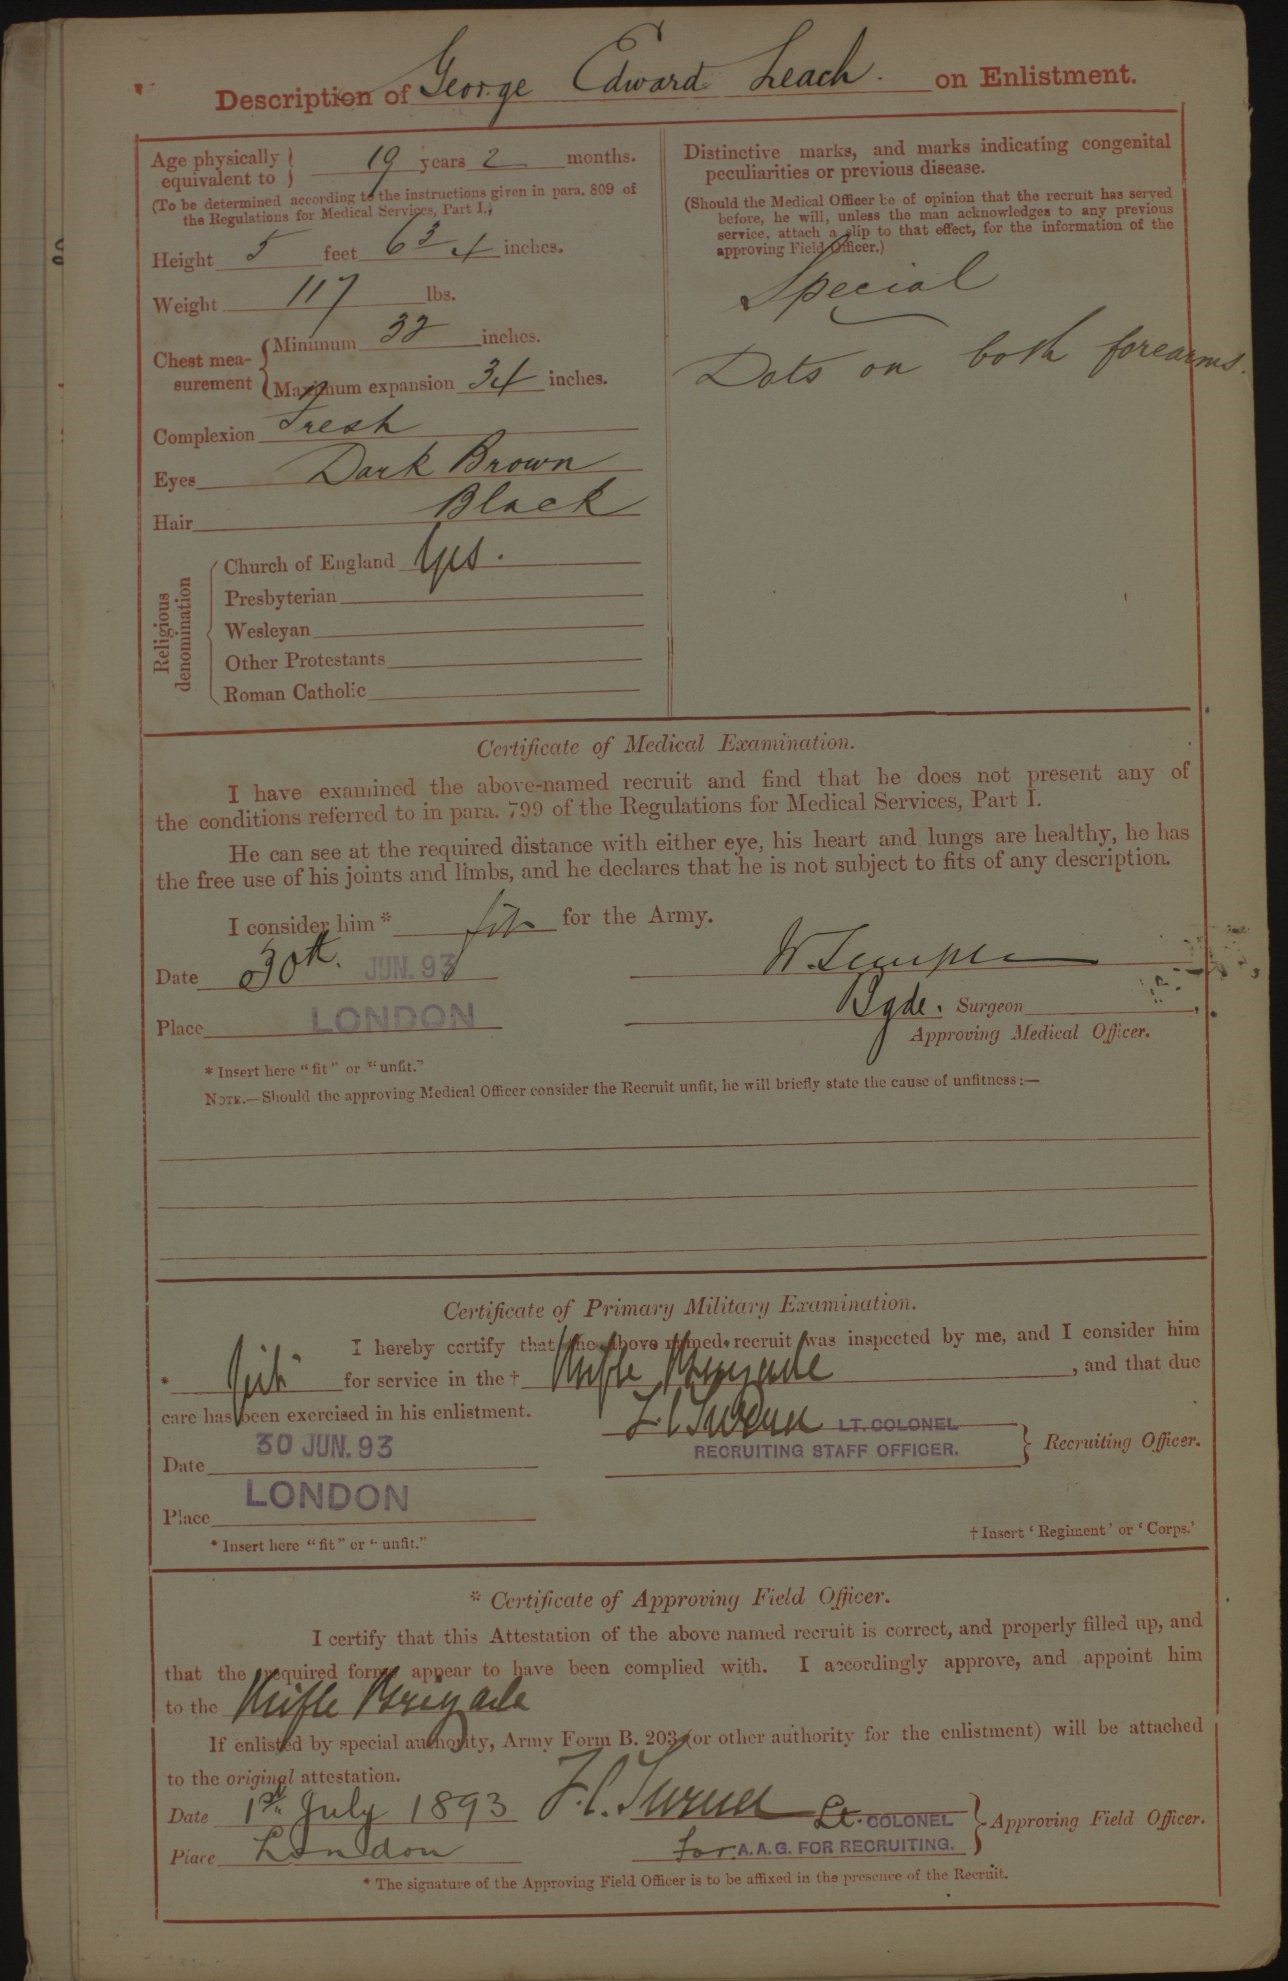 Description of George Edward Leach. on Enlistment.
Age physically equivalent to } 19 years 2 months.
(To be determined according to the instructions given in para. 809 of
the Regulations for Medical Services, Part I.)
Height 5 feet 6 3/4 inches.
Weight 117 lbs.
Chest measurement { Minimum 32 inches.
Maximum expansion 34 inches.
Complexion Fresh
Eyes Dark Brown
Hair Black
Religious denomination
Church of England Yes.
Presbyterian
Wesleyan
Other Protestants
Roman Catholic
Distinctive marks, and marks indicating congenital
peculiarities or previous disease.
(Should the Medical Officer be of opinion that the recruit has served
before, he will, unless the man acknowledges to any previous
service, attach a slip to that effect, for the information of the
approving Field Officer.)
Special
Dots on both forearms.
Certificate of Medical Examination.
I have examined the above-named recruit and find that he does not present any of
the conditions referred to in para. 799 of the Regulations for Medical Services, Part I.
He can see at the required distance with either eye, his heart and lungs are healthy, he has
the free use of his joints and limbs, and he declares that he is not subject to fits of any description.
I consider him * fit for the Army.
Date 30th. JUN. 93
W. Temple
Place LONDON
Bgde. Surgeon
Approving Medical Officer.
* Insert here "fit" or "unfit."
NOTE.—Should the approving Medical Officer consider the Recruit unfit, he will briefly state the cause of unfitness:—
Certificate of Primary Military Examination.
I hereby certify that the above named recruit was inspected by me, and I consider him
* fit for service in the † Rifle Brigade, and that due
care has been exercised in his enlistment.
LT. COLONEL
RECRUITING STAFF OFFICER. } Recruiting Officer.
Date 30 JUN. 93
Place LONDON
* Insert here "fit" or "unfit."
† Insert 'Regiment' or 'Corps.'
* Certificate of Approving Field Officer.
I certify that this Attestation of the above named recruit is correct, and properly filled up, and
that the required forms appear to have been complied with. I accordingly approve, and appoint him
to the Rifle Brigade
If enlisted by special authority, Army Form B. 203 (or other authority for the enlistment) will be attached
to the original attestation.
Date 1st July 1893
Lt. COLONEL
Place London
for A. A. G. FOR RECRUITING. } Approving Field Officer.
* The signature of the Approving Field Officer is to be affixed in the presence of the Recruit.